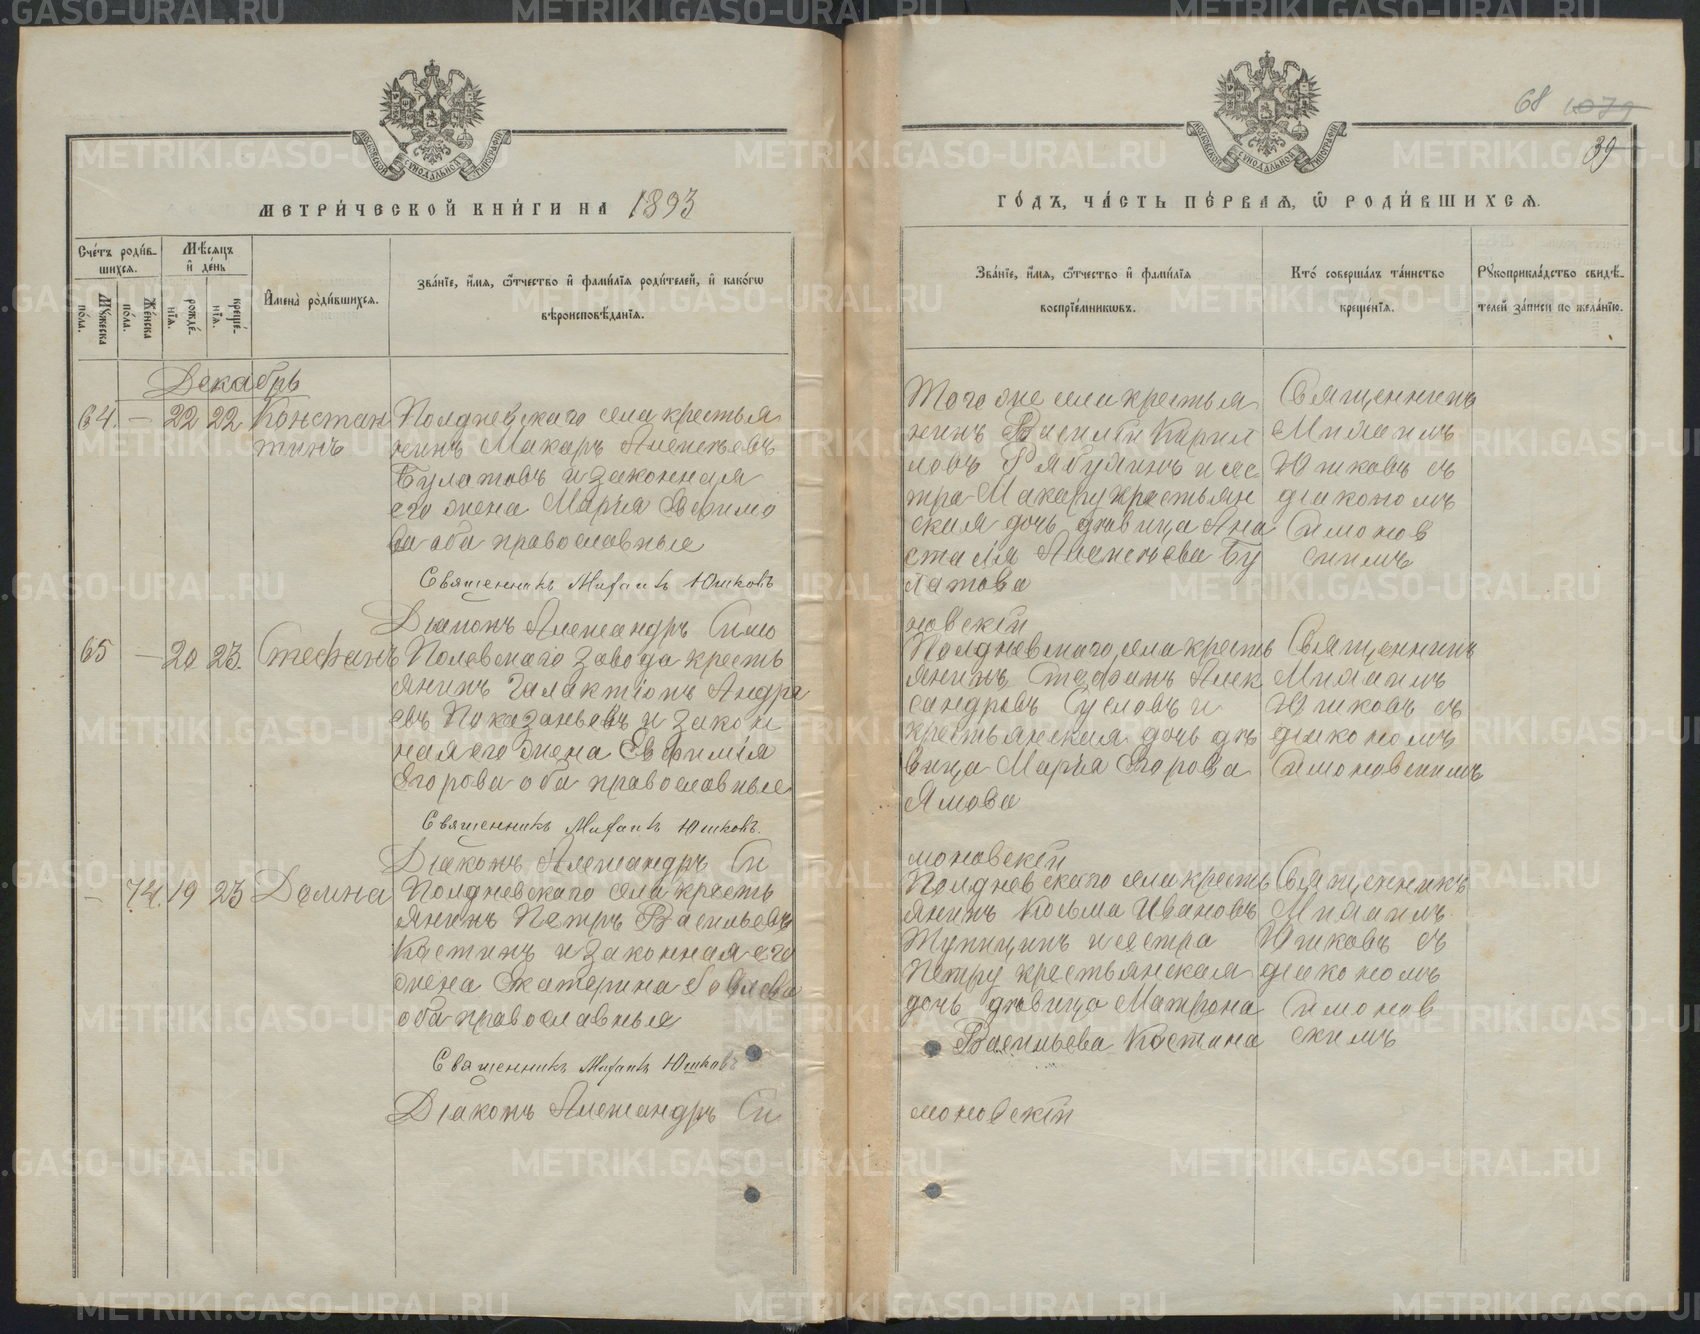 МОСКОВСКОЙ СѴНОДАЛЬНОЙ ТИПОГРАФІИ
МЕТРИ́ЧЕСКОЙ КНИ́ГИ НА 1893
Сче́тъ роди́в-
шихсѧ.
Мѣ́сѧцъ
и҆ де́нь
Мꙋ́жеска
по́ла.
Же́нска
по́ла.
рожде́-
нїѧ.
креще́-
нїѧ.
И҆мена̀ роди́вшихсѧ.
Зва́нїе, и҆́мѧ, ѻ҆́тчество и҆ фами́лїѧ роди́телей, и҆ како́гѡ
вѣроисповѣ́данїѧ.
Декабрь
64. — 22 22 Констан
тинъ
Полдневскаго села крестья
нинъ Макаръ Алексѣевъ
Булатовъ и законная
его жена Марія Евфимо
ва оба православные
Священникъ Михаилъ Юшковъ
Діаконъ Александръ Симо
65 — 20 23. Стефанъ
Полевскаго завода кресть
янинъ Галактіонъ Андре
евъ Показаньевъ и закон
ная его жена Евфимія
Егорова оба православные
Священникъ Михаилъ Юшковъ.
Діаконъ Александръ Си
— 74. 19 23 Домна
Полдневскаго села кресть
янинъ Петръ Васильевъ
Костинъ и законная его
жена Екатерина
оба православные
Священникъ Михаилъ Юшковъ
Діаконъ Александръ Си
68 1079
39
МОСКОВСКОЙ СѴНОДАЛЬНОЙ ТИПОГРАФІИ
ГО́ДЪ, ЧА́СТЬ ПЕ́РВАѦ, Ѡ҆ РОДИ́ВШИХСѦ.
Зва́нїе, и҆́мѧ, ѻ҆́тчество и҆ фами́лїѧ
воспрїе́мникѡвъ.
Кто̀ соверша́лъ та́инство
креще́нїѧ.
Рꙋкоприкла́дство свидѣ́-
телей за́писи по жела́нїю.
Того же села крестья
нинъ Василій Карил
ловъ Рябухинъ и сес
тра Макару крестьян
ская дочь дѣвица Ана
стасія Алексѣева Бу
латова
Священникъ
Михаилъ
Юшковъ съ
діакономъ
Симонов
скимъ
новскій
Полдневскаго села кресть
янинъ Стефанъ Алек
сандровъ Сусловъ и
крестьянская дочь дѣ
вица Марія Егорова
Ямова
Священникъ
Михаилъ
Юшковъ съ
діакономъ
Симоновскимъ
моновскій
Полдневскаго села кресть
янинъ Косьма Ивановъ
Тупицинъ и сестра
Петру крестьянская
дочь дѣвица Матрона
Васильева Костина
Священникъ
Михаилъ
Юшковъ съ
діакономъ
Симонов
скимъ
моновскій
METRIKI.GASO-URAL.RU